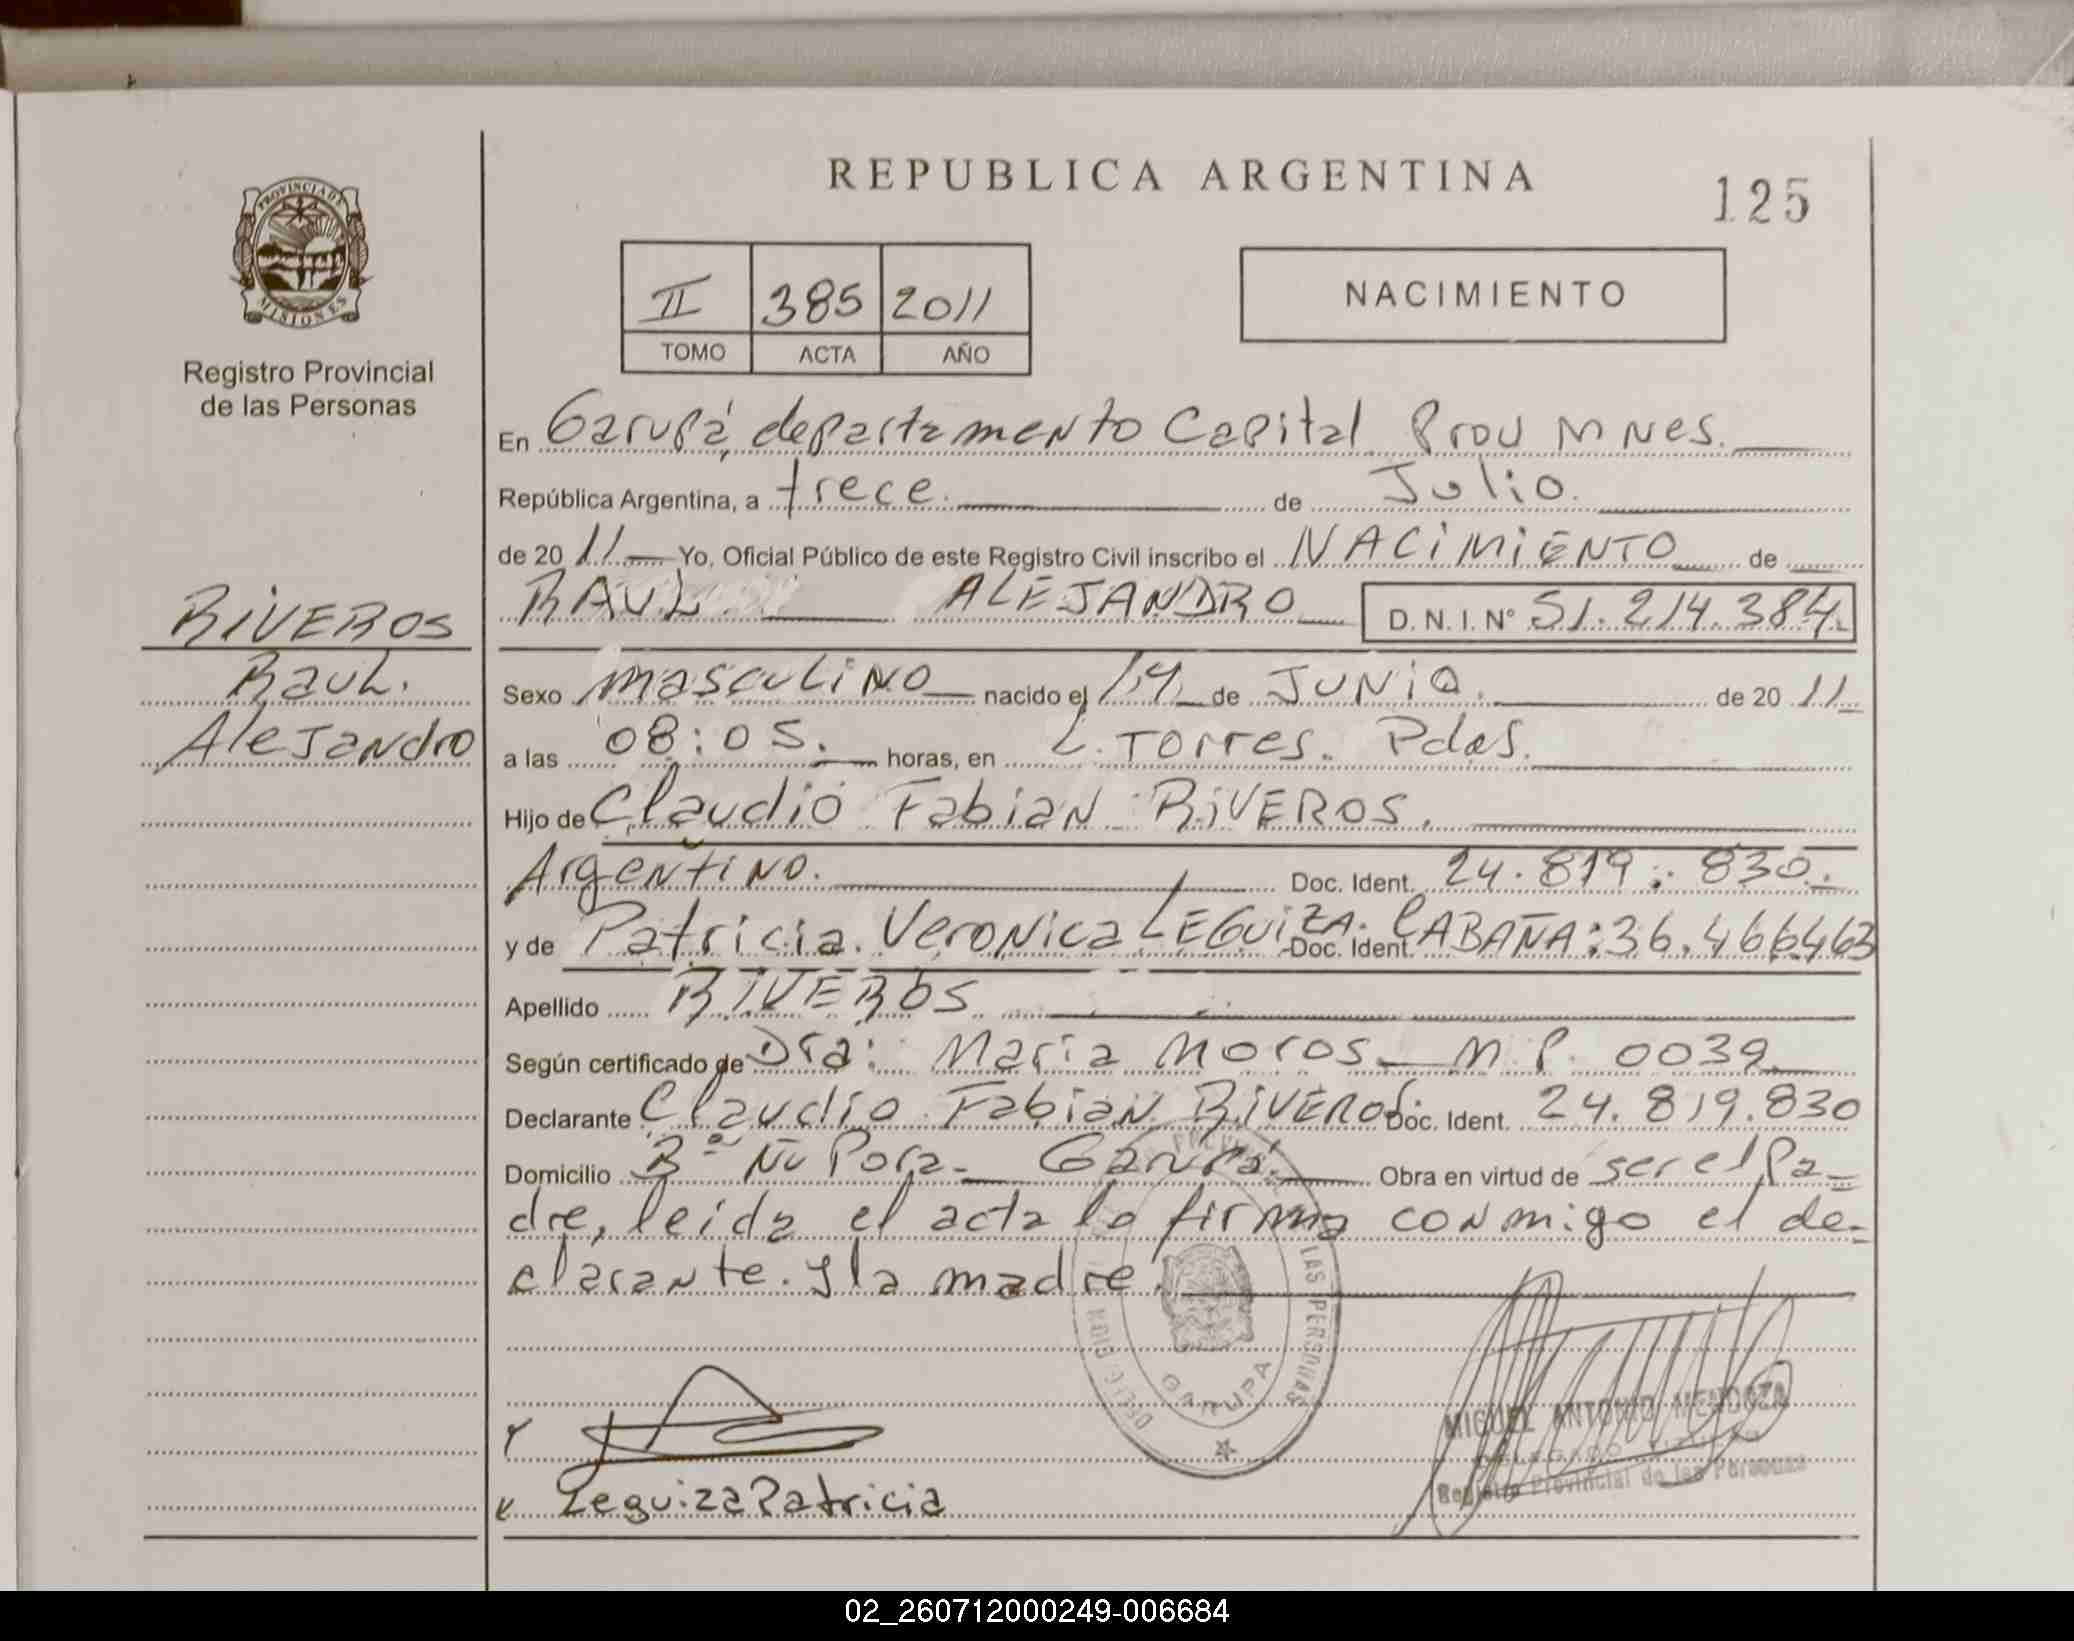 REPUBLICA ARGENTINA
125
PROVINCIA DE
MISIONES
Registro Provincial
de las Personas
II 385 2011
TOMO ACTA AÑO
NACIMIENTO
En Garupá, departamento Capital Prov Mnes.
República Argentina, a trece. de Julio.
de 20 11 Yo, Oficial Público de este Registro Civil inscribo el NACIMIENTO de
RAUL ALEJANDRO D. N. I. N° 51.214.384.
RIVEROS
Raul.
Alejandro
Sexo masculino nacido el 14 de JUNIO. de 20 11
a las 08:05. horas, en L. Torres. Pdas.
Hijo de Claudio Fabian RIVEROS.
Argentino. Doc. Ident. 24.819.830.
y de Patricia Veronica LEGUIZA. Doc. Ident. CABAÑA: 36.466463
Apellido RIVEROS
Según certificado de Dra: Maria Moros M.P. 0039
Declarante Claudio Fabian RIVEROS. Doc. Ident. 24.819.830
Domicilio B° Ñu Pora - Garupá. Obra en virtud de ser el Pa-
dre, leida el acta la firma conmigo el de-
clarante. y la madre.
LAS PERSONAS
GARUPA
MIGUEL ANTONIO MENDOZA
DELEGADO TITULAR
Registro Provincial de las Personas
Leguiza Patricia
02_260712000249-006684